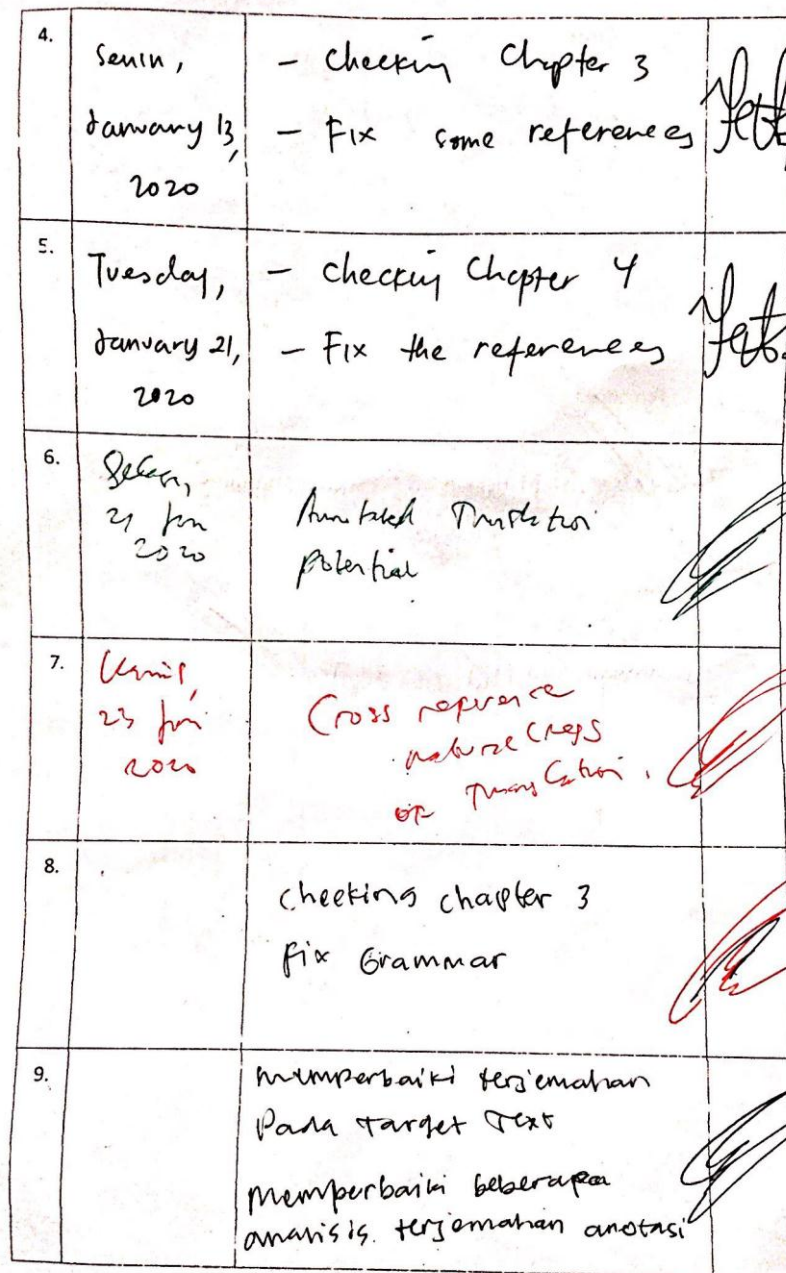 4.
Senin,
January 13,
2020
- Checking Chapter 3
- Fix some references
5.
Tuesday,
January 21,
2020
- Checking Chapter 4
- Fix the references
6.
21 Jan
2020
Potential
7.
Kamis,
23 Jan
2020
Cross reference
of Translation.
8.
Checking chapter 3
Fix Grammar
9.
Memperbaiki terjemahan
Pada Target Text
Memperbaiki beberapa
analisis terjemahan anotasi